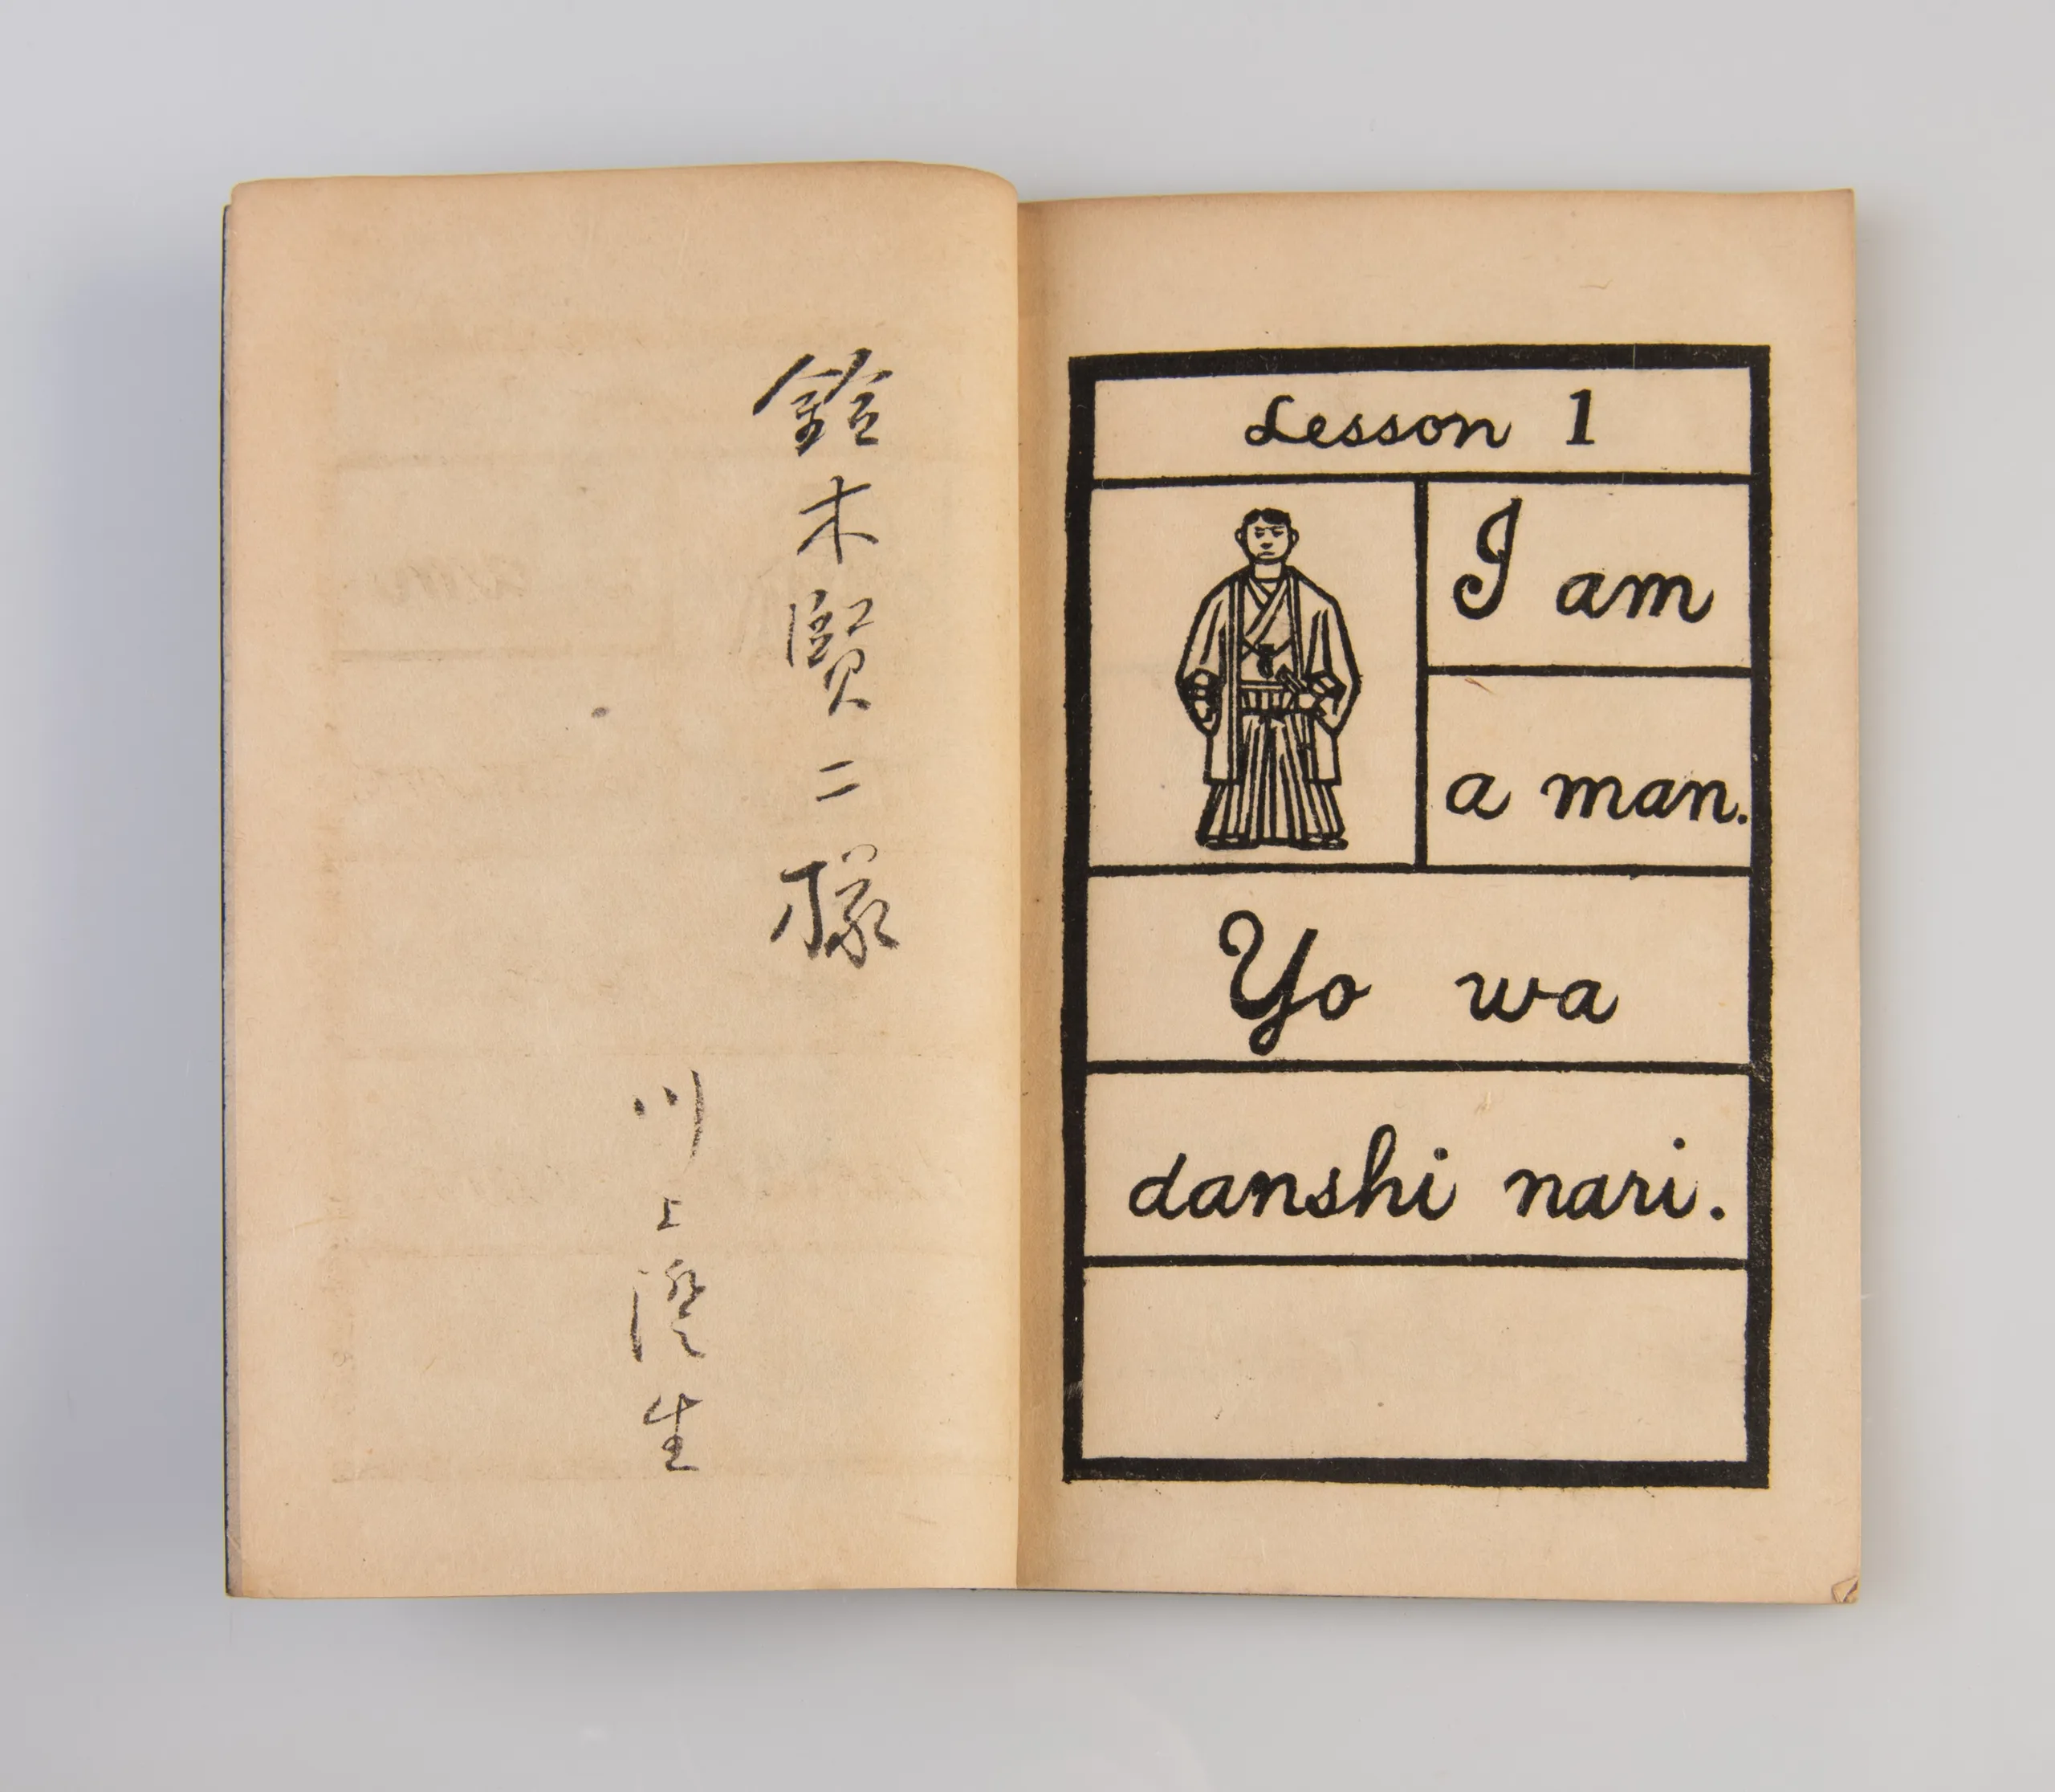 鈴木賢二様
川上澄生
Lesson 1
I am
a man.
Yo wa
danshi nari.